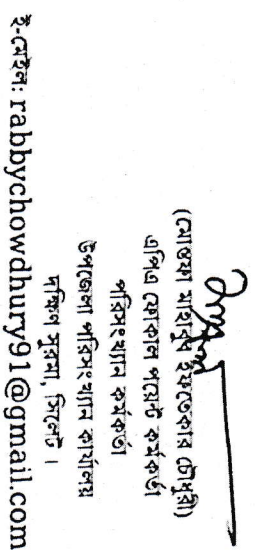 (মোস্তফা মাহাবুব ইফতেকার চৌধুরী)
এপিএ ফোকাল পয়েন্ট কর্মকর্তা
পরিসংখ্যান কর্মকর্তা
উপজেলা পরিসংখ্যান কার্যালয়
দক্ষিণ সুরমা, সিলেট।
ই-মেইল: rabbychowdhury91@gmail.com